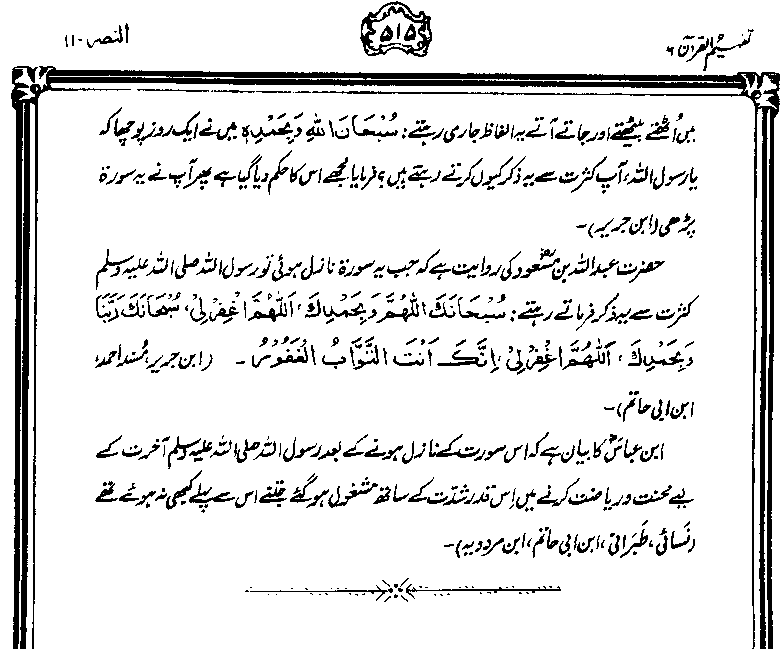 تفہیم القرآن ۶
۵۱۵
النصر ۱۱۰
میں اُٹھتے بیٹھتے اور جاتے آتے یہ الفاظ جاری رہتے: سُبْحَانَ اللهِ وَبِحَمْدِہٖ میں نے ایک روز پوچھا کہ
یا رسول اللہ، آپ کثرت سے یہ ذکر کیوں کرتے رہتے ہیں؟ فرمایا مجھے اس کا حکم دیا گیا ہے پھر آپ نے یہ سورۃ
پڑھی (ابن جریر)۔
حضرت عبداللہ بن مسعودؓ کی روایت ہے کہ جب یہ سورۃ نازل ہوئی تو رسول اللہ صلی اللہ علیہ وسلم
کثرت سے یہ ذکر فرماتے رہتے: سُبْحَانَكَ اللّٰهُمَّ وَبِحَمْدِكَ، اَللّٰهُمَّ اغْفِرْ لِیْ، سُبْحَانَكَ رَبَّنَا
وَبِحَمْدِكَ، اَللّٰهُمَّ اغْفِرْ لِیْ، اِنَّكَ اَنْتَ التَّوَّابُ الْغَفُوْرُ۔ (ابن جریر، مُسند احمد،
ابن ابی حاتم)۔
ابن عباسؓ کا بیان ہے کہ اس سورت کے نازل ہونے کے بعد رسول اللہ صلی اللہ علیہ وسلم آخرت کے
لیے محنت و ریاضت کرنے میں اِس قدر شدّت کے ساتھ مشغول ہو گئے جتنے اس سے پہلے کبھی نہ ہوئے تھے
(نَسائی، طَبَرانی، ابن ابی حاتم، ابن مردویہ)۔